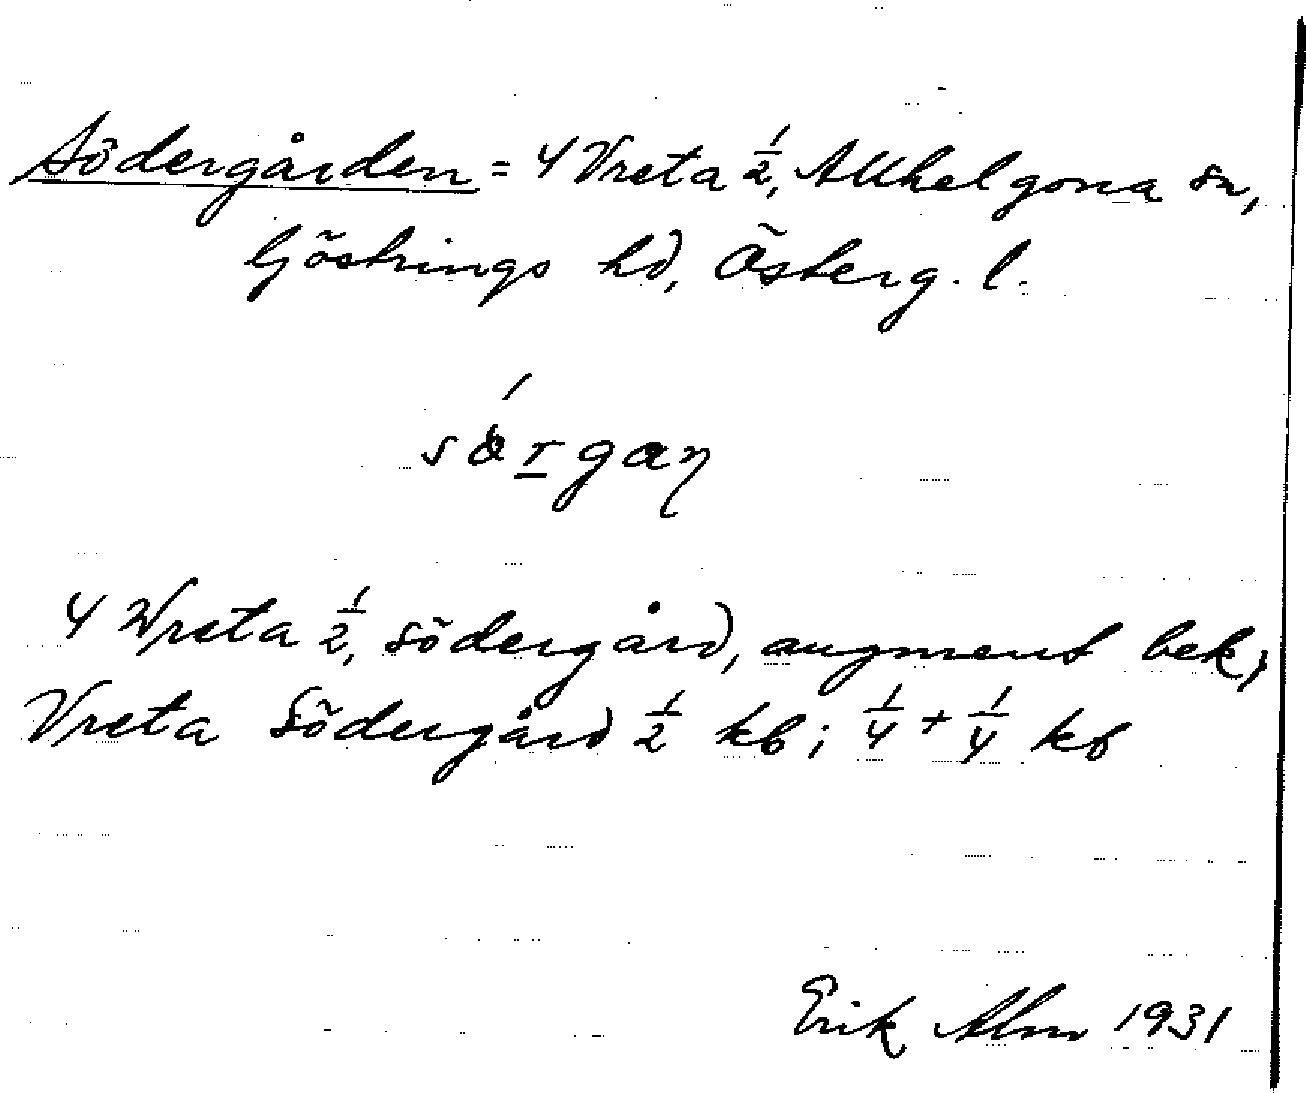 Södergården = 4 Vreta ½, Allhelgona sn,
Göstrings hd, Österg. l.
4 Wreta ½, södergård, augment bek,
Vreta Södergård ½ kb; ¼ + ¼ kb
Erik Alm 1931